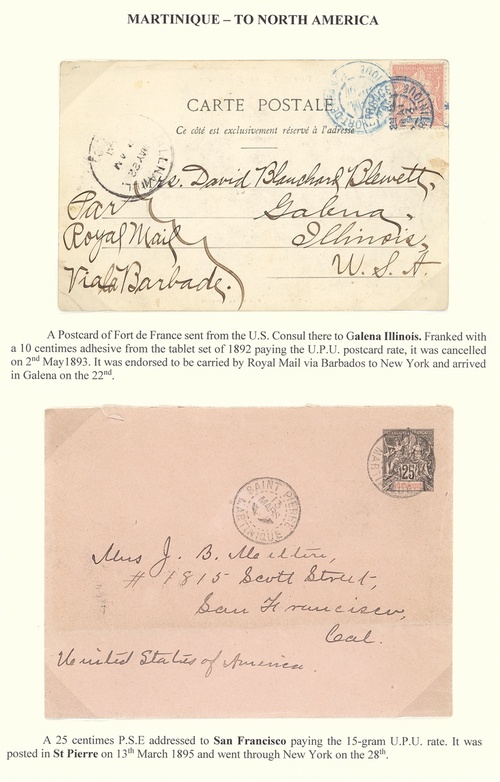 MARTINIQUE – TO NORTH AMERICA
CARTE POSTALE
Ce côté est exclusivement réservé à l'adresse
Mrs. David Blanchard Blewett,
Galena,
Illinois,
U. S. A.
Par
Royal Mail
Via la Barbade.
A Postcard of Fort de France sent from the U.S. Consul there to Galena Illinois. Franked with
a 10 centimes adhesive from the tablet set of 1892 paying the U.P.U. postcard rate, it was cancelled
on 2nd May1893. It was endorsed to be carried by Royal Mail via Barbados to New York and arrived
in Galena on the 22nd.
25
SAINT PIERRE
13
MARS
MARTINIQUE
Mrs J. B.
# 1815 Scott Street,
San Francisco,
Cal.
United States of America.
A 25 centimes P.S.E addressed to San Francisco paying the 15-gram U.P.U. rate. It was
posted in St Pierre on 13th March 1895 and went through New York on the 28th.